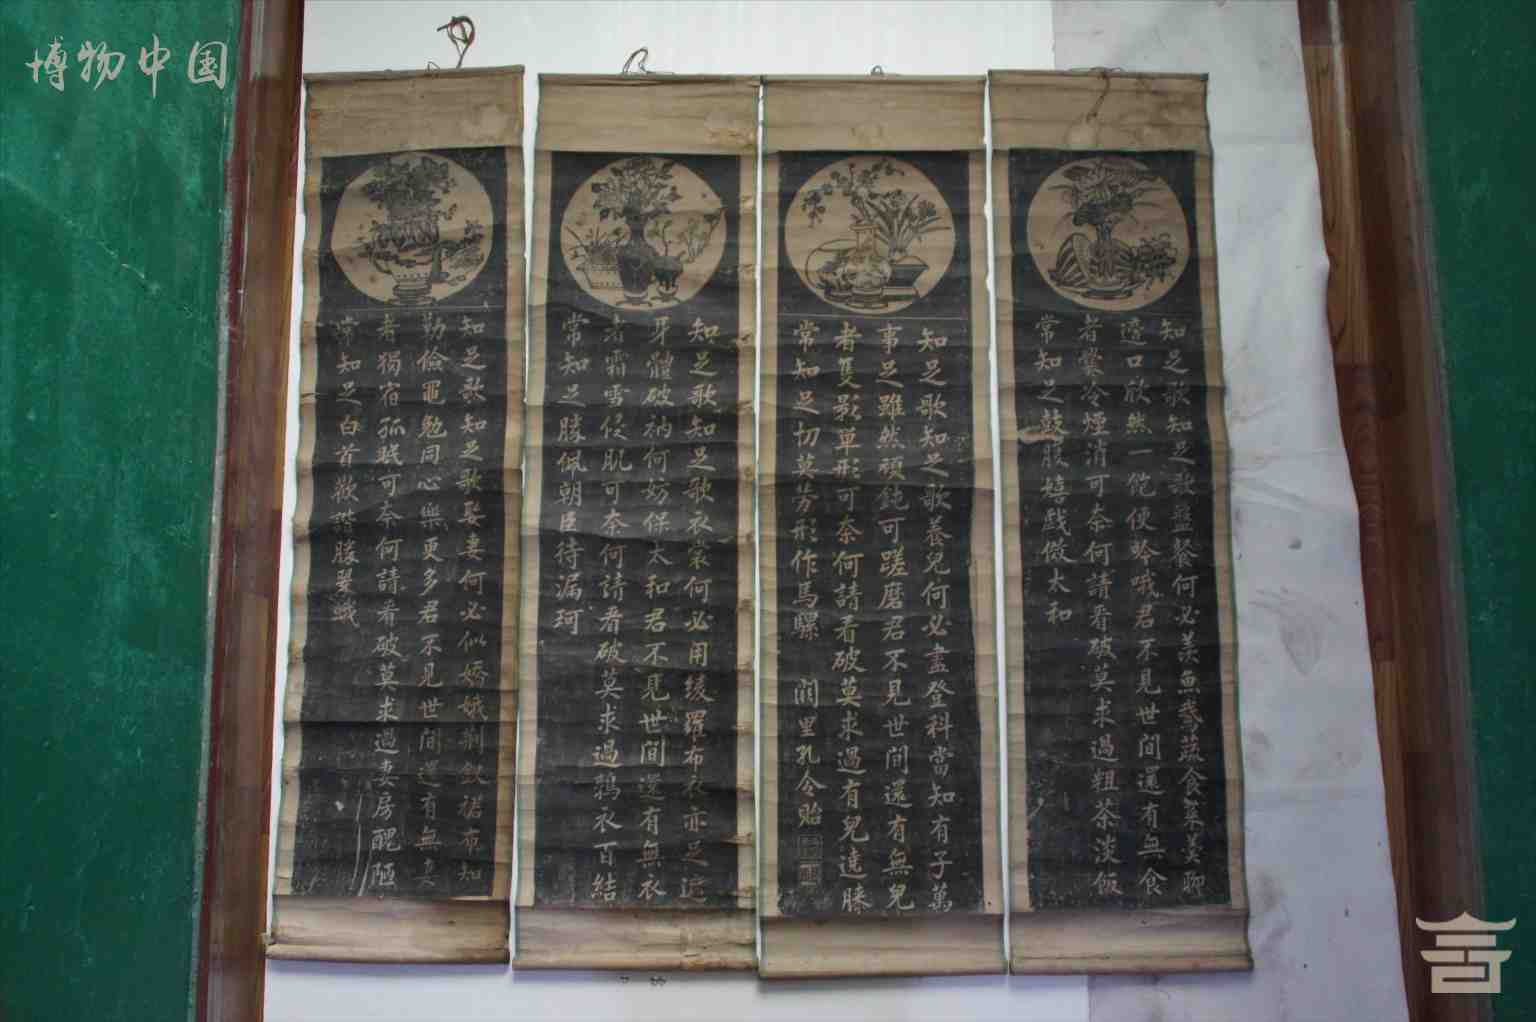 博物中国
知足歌知足歌盤餐何必美魚鵞蔬食菜羹聊
適口欣然一飽便吟哦君不見世間還有無食
者爨冷煙消可奈何請看破莫求過粗茶淡飯
常知足鼓腹嬉戲微太和
知足歌知足歌養兒何必盡登科當知有子萬
事足雖然頑鈍可蹉磨君不見世間還有無兒
者隻影單形可奈何請看破莫求過有兒遶膝
常知足切莫劳形作馬騾 闕里孔令貽
知足歌知足歌衣裳何必用綾羅布衣亦足遮
身體破衲何妨保太和君不見世間還有無衣
者霜雪侵肌可奈何請看破莫求過鶉衣百結
常知足勝佩朝臣待漏珂
知足歌知足歌娶妻何必似嬌娥荆釵裙布知
勤儉黽勉同心樂更多君不見世間還有無妻
者獨宿孤眠可奈何請看破莫求過妻房醜陋
常知足白首歡諧勝翠蛾